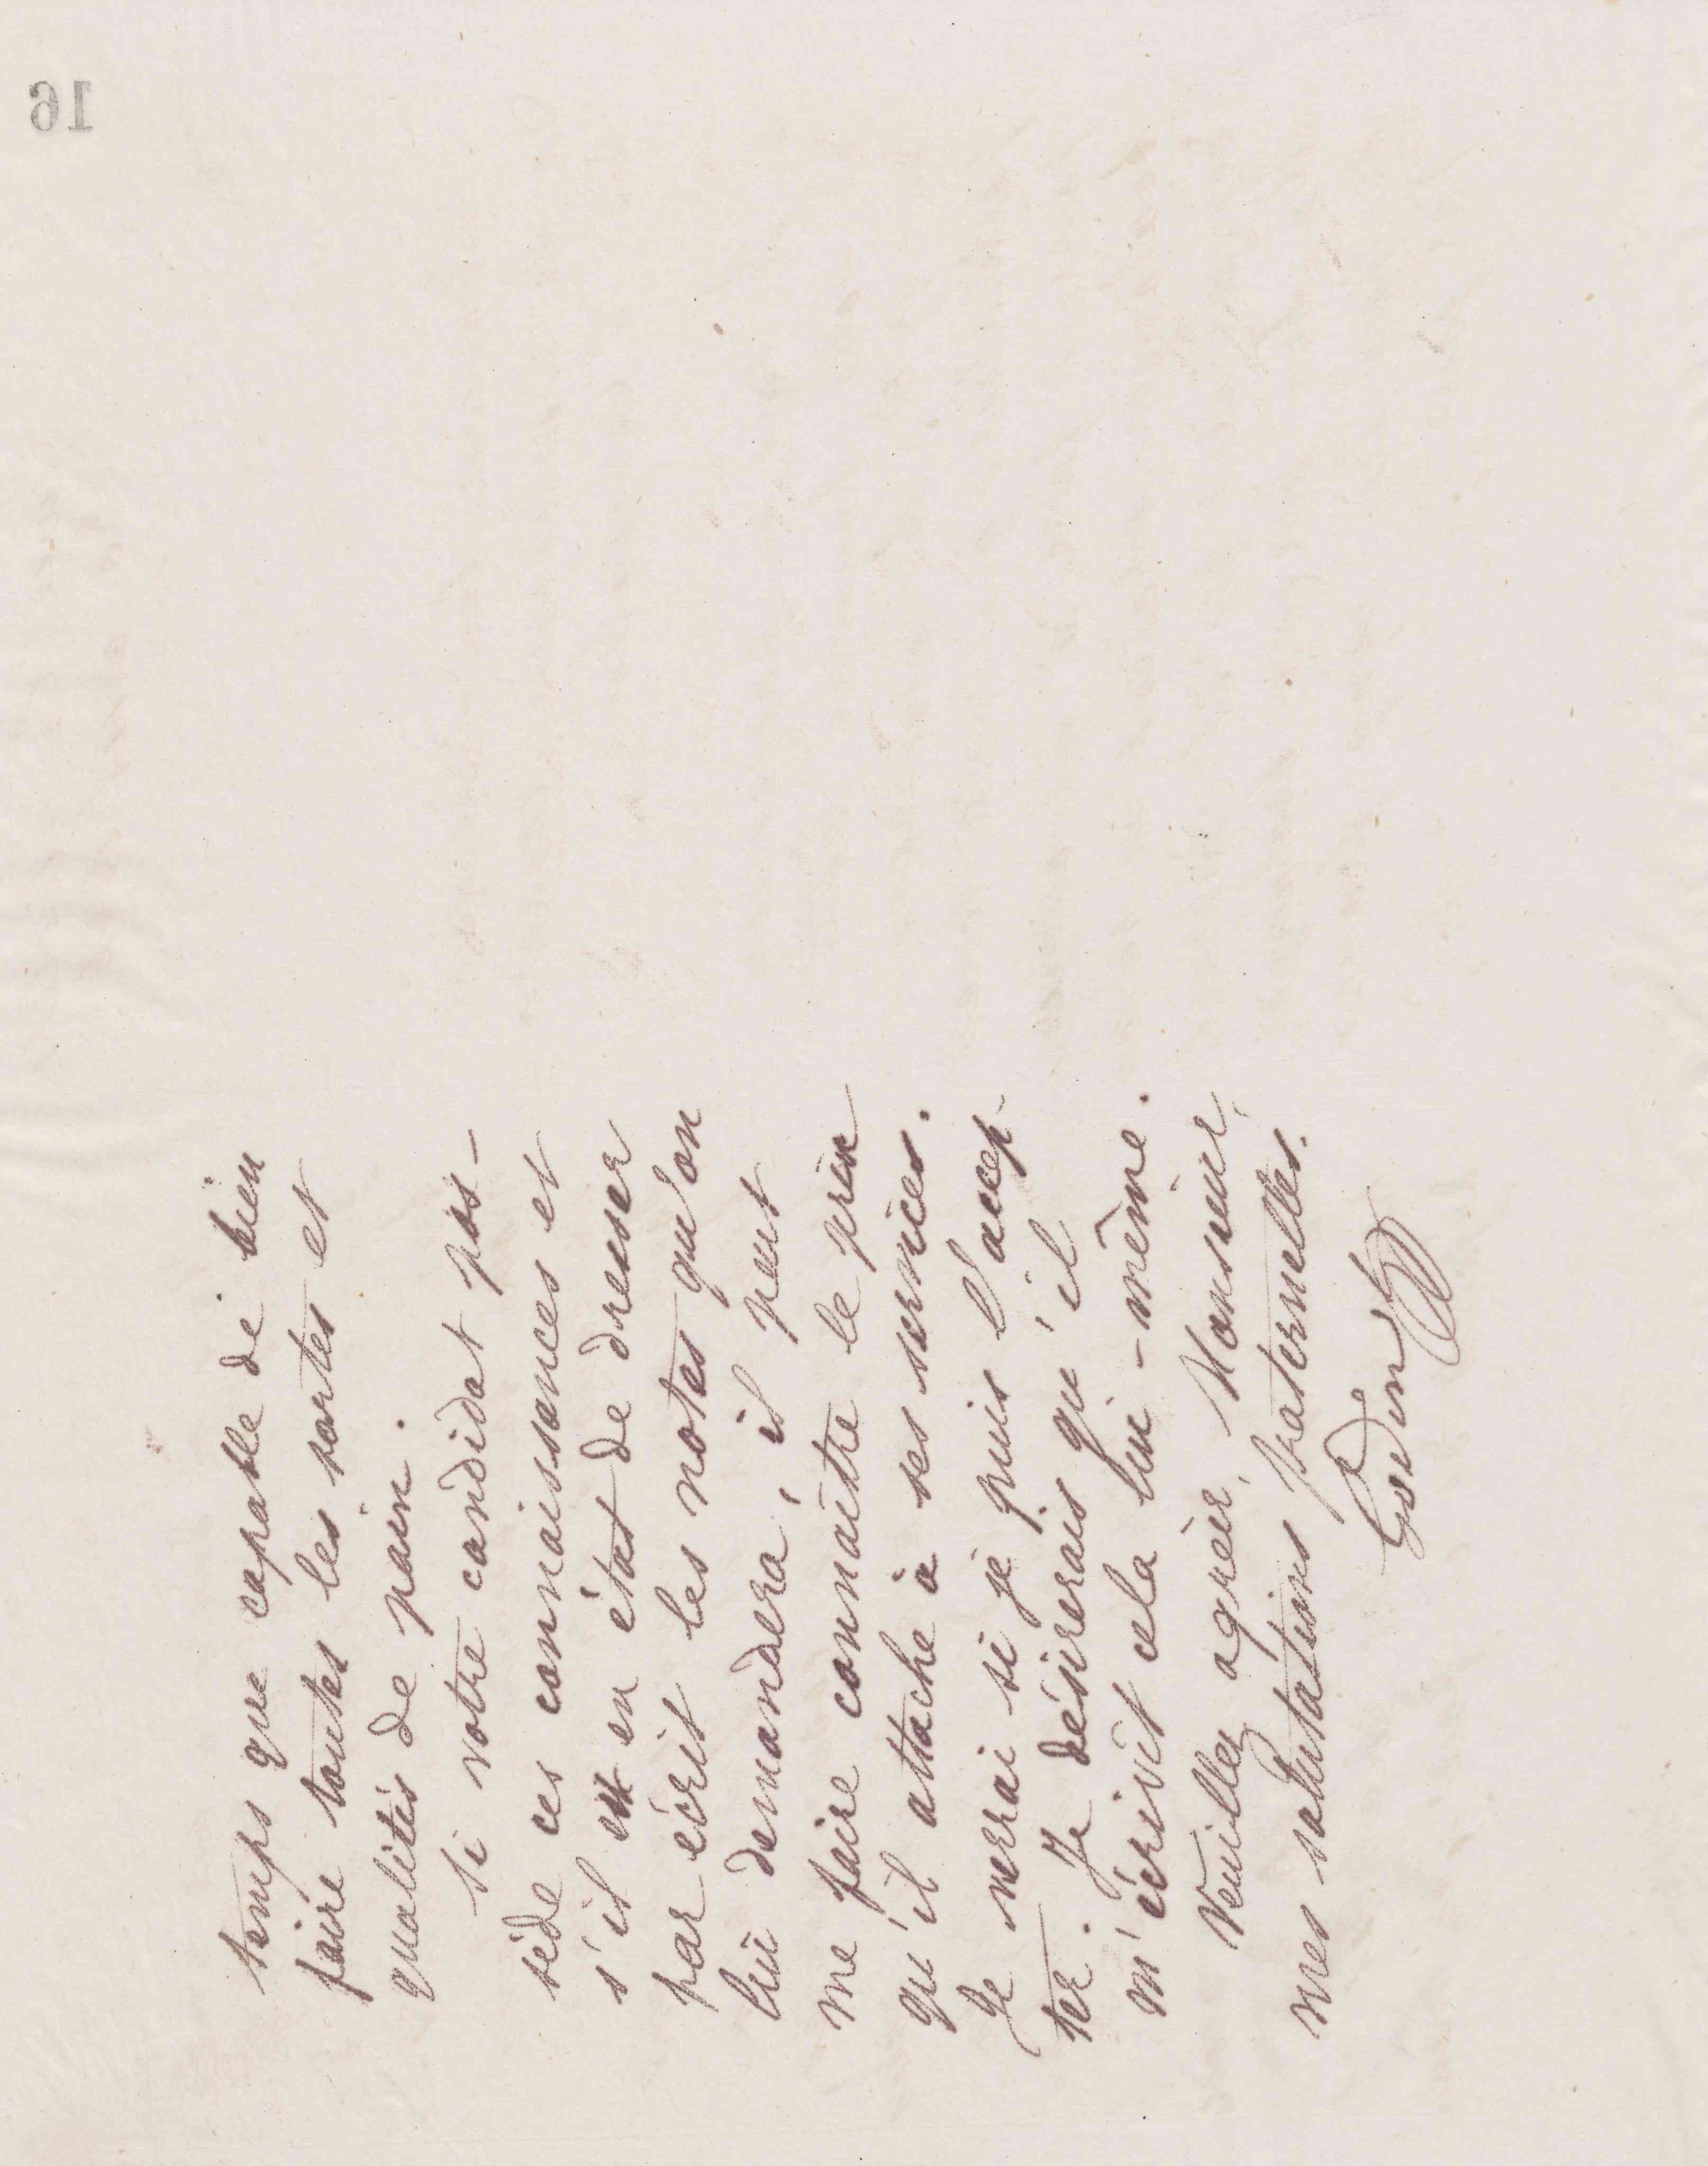 16
temps que capable de bien
faire toutes les sortes et
qualités de pain.
Si votre candidat pos-
sède ces connaissances et
s'il est en état de dresser
par écrit les notes qu'on
lui demandera, il peut
me faire connaître le prix
qu'il attache à ses services.
Je verrai si je puis l'accep-
ter. Je désirerais qu'il
m'écrivit cela lui-même.
Veuillez agréer, Monsieur,
mes salutations fraternelles.
Godin